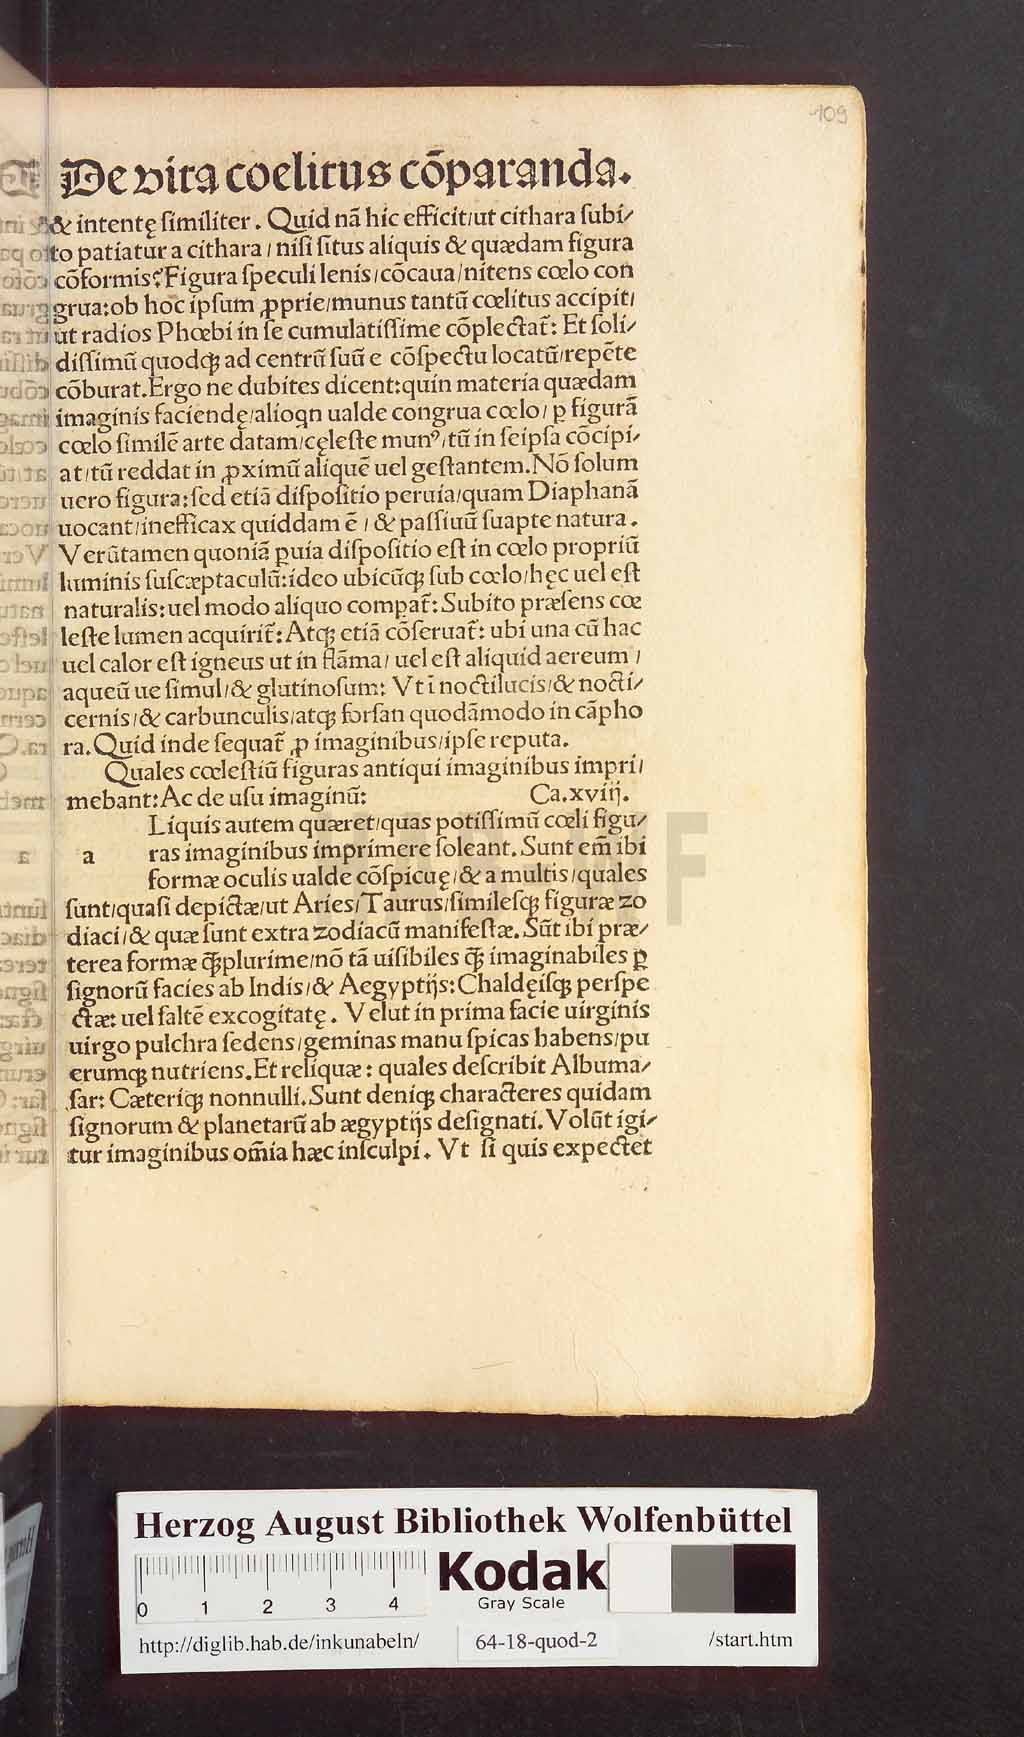 109
De vita coelitus cōparanda.
& intentę ſimiliter. Quid nā hic efficit/ut cithara ſubi/
to patiatur a cithara / niſi ſitus aliquis & quædam figura
cōformis? Figura ſpeculi lenis/cōcaua/nitens cœlo con
grua: ob hoc ipſum ꝓprie/munus tantū cœlitus accipit/
ut radios Phœbi in ſe cumulatiſſime cōplectat̄: Et ſoli/
diſſimū quodqꝫ ad centrū ſuū e cōſpectu locatū/repēte
cōburat. Ergo ne dubites dicent: quin materia quædam
imaginis faciendę/alioqn ualde congrua cœlo/ ꝑ figurā
cœlo ſimilē arte datam/cęleſte munꝰ/tū in ſeipſa cōcipi/
at/tū reddat in ꝓximū aliquē uel geſtantem. Nō ſolum
uero figura: ſed etiā diſpoſitio peruia/quam Diaphanā
uocant/inefficax quiddam ē / & paſſiuū ſuapte natura.
Verūtamen quoniā ꝑuia diſpoſitio eſt in cœlo propriū
luminis ſuſcæptaculū: ideo ubicūqꝫ ſub cœlo/hęc uel eſt
naturalis: uel modo aliquo compat̄: Subito præſens cœ
leſte lumen acquirit̄: Atqꝫ etiā cōſeruat̄: ubi una cū hac
uel calor eſt igneus ut in flāma/ uel eſt aliquid aereum /
aqueū ue ſimul/& glutinoſum: Vt ī noctilucis/& nocti/
cernis/& carbunculis/atqꝫ forſan quodāmodo in cāpho
ra. Quid inde ſequat̄ ꝓ imaginibus/ipſe reputa.
Quales cœleſtiū figuras antiqui imaginibus impri/
mebant: Ac de uſu imaginū: Ca.xviij.
Liquis autem quæret/quas potiſſimū cœli figu/
a ras imaginibus imprimere ſoleant. Sunt em̄ ibi
formæ oculis ualde cōſpicuę/& a multis/quales
ſunt/quaſi depictæ/ut Aries/Taurus/ſimileſqꝫ figuræ zo
diaci/& quæ ſunt extra zodiacū manifeſtæ. Sūt ibi præ/
terea formæ ꝙ̄plurime/nō tā uiſibiles ꝙ̄ imaginabiles ꝑ
ſignorū facies ab Indis/& Aegyptijs: Chaldęiſqꝫ perſpe
ctæ: uel ſaltē excogitatę. Velut in prima facie uirginis
uirgo pulchra ſedens/geminas manu ſpicas habens/pu
erumqꝫ nutriens. Et reliquæ: quales deſcribit Albuma/
ſar: Cæteriqꝫ nonnulli. Sunt deniqꝫ characteres quidam
ſignorum & planetarū ab ægyptijs deſignati. Volūt igi/
tur imaginibus om̄ia hæc inſculpi. Vt ſi quis expectet
Herzog August Bibliothek Wolfenbüttel
0 1 2 3 4
Kodak
Gray Scale
http://diglib.hab.de/inkunabeln/ 64-18-quod-2 /start.htm